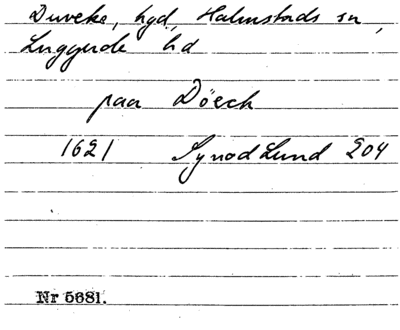 Duveke, hgd, Halmstads sn,
Luggude hd
paa Döeck
1621 Synod Lund 204
Nr 5681.